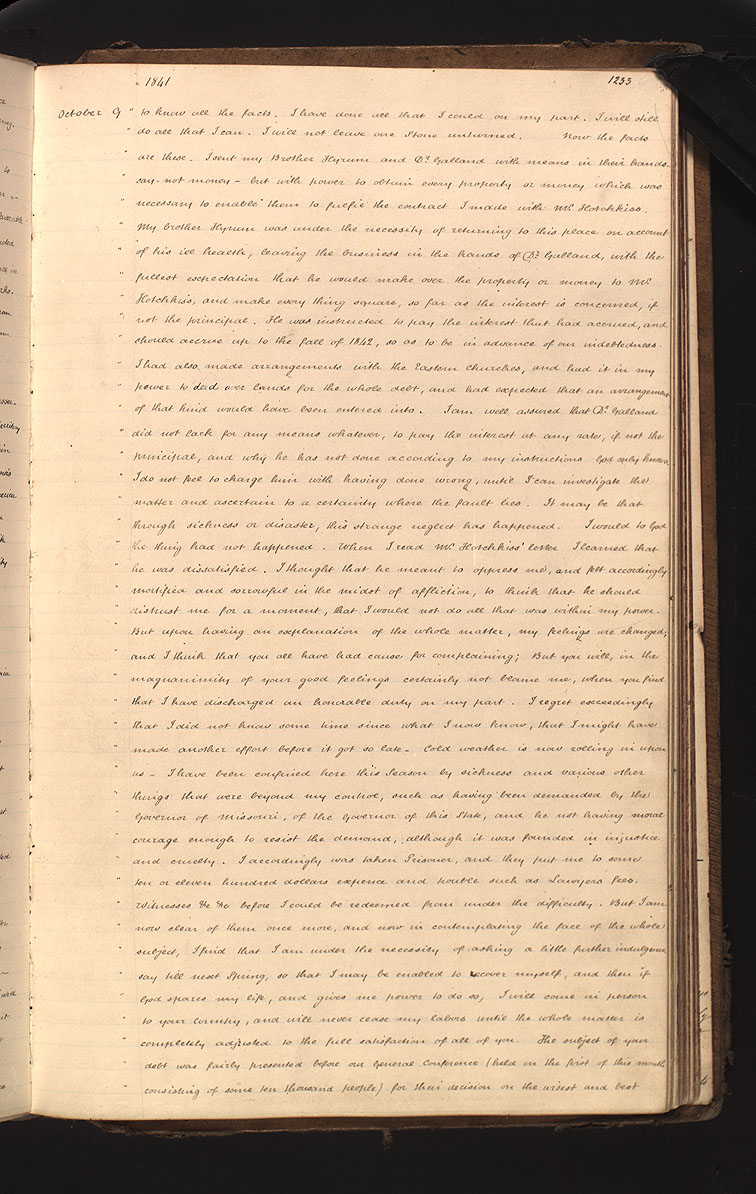 1841 1233
October 9 " to know all the facts. I have done all that I could on my part. I will still
" do all that I can. I will not leave one Stone unturned. Now the facts
" are these. I sent my Brother Hyrum and Dr. Galland with means in their hands
" say not money – but with power to obtain every property or money which was
" necessary to enable them to fulfil the contract I made with Mr. Hotchkiss.
" My brother Hyrum was under the necessity of returning to this place on account
" of his ill health, leaving the business in the hands of Dr. Galland, with the
" fullest expectation that he would make over the property or money to Mr.
" Hotchkiss, and make every thing square, so far as the interest is concerned, if
" not the principal. He was instructed to pay the interest that had accrued, and
" should accrue up to the fall of 1842, so as to be in advance of our indebtedness.
" I had also made arrangements with the Eastern churches, and had it in my
" power to deed over lands for the whole debt, and had expected that an arrangement
" of that kind would have been entered into. I am well assured that Dr. Galland
" did not lack for any means whatever, to pay the interest at any rate, if not the
" principal, and why he has not done according to my instructions God only knows.
" I do not feel to charge him with having done wrong, until I can investigate the
" matter and ascertain to a certainty where the fault lies. It may be that
" through sickness or disaster, this strange neglect has happened. I would to God
" the thing had not happened. When I read Mr. Hotchkiss' letter I learned that
" he was dissatisfied. I thought that he meant to oppress me, and felt accordingly
" mortified and sorrowful in the midst of affliction, to think that he should
" distrust me for a moment, that I would not do all that was within my power.
" But upon having an explanation of the whole matter, my feelings are changed,
" and I think that you all have had cause for complaining; But you will, in the
" magnanimity of your good feelings certainly not blame me, when you find
" that I have discharged an honorable duty on my part. I regret exceedingly
" that I did not know some time since what I now know, that I might have
" made another effort before it got so late – Cold weather is now rolling in upon
" us – I have been confined here this Season by sickness and various other
" things that were beyond my control, such as having been demanded by the
" Governor of Missouri, of the Governor of this State, and he not having moral
" courage enough to resist the demand, although it was founded in injustice
" and cruelty. I accordingly was taken Prisoner, and they put me to some
" ten or eleven hundred dollars expence and trouble such as Lawyers fees.
" Witnesses &c &c before I could be redeemed from under the difficulty. But I am
" now clear of them once more, and now in contemplating the face of the whole
" subject, I find that I am under the necessity of asking a little further indulgence
" say till next Spring, so that I may be enabled to recover myself, and then if
" God spares my life, and gives me power to do so, I will come in person
" to your Country, and will never cease my labors until the whole matter is
" completely adjusted to the full satisfaction of all of you. The subject of your
" debt was fairly presented before our General Conference (held on the first of this month
" consisting of some ten thousand people) for their decision on the wisest and best